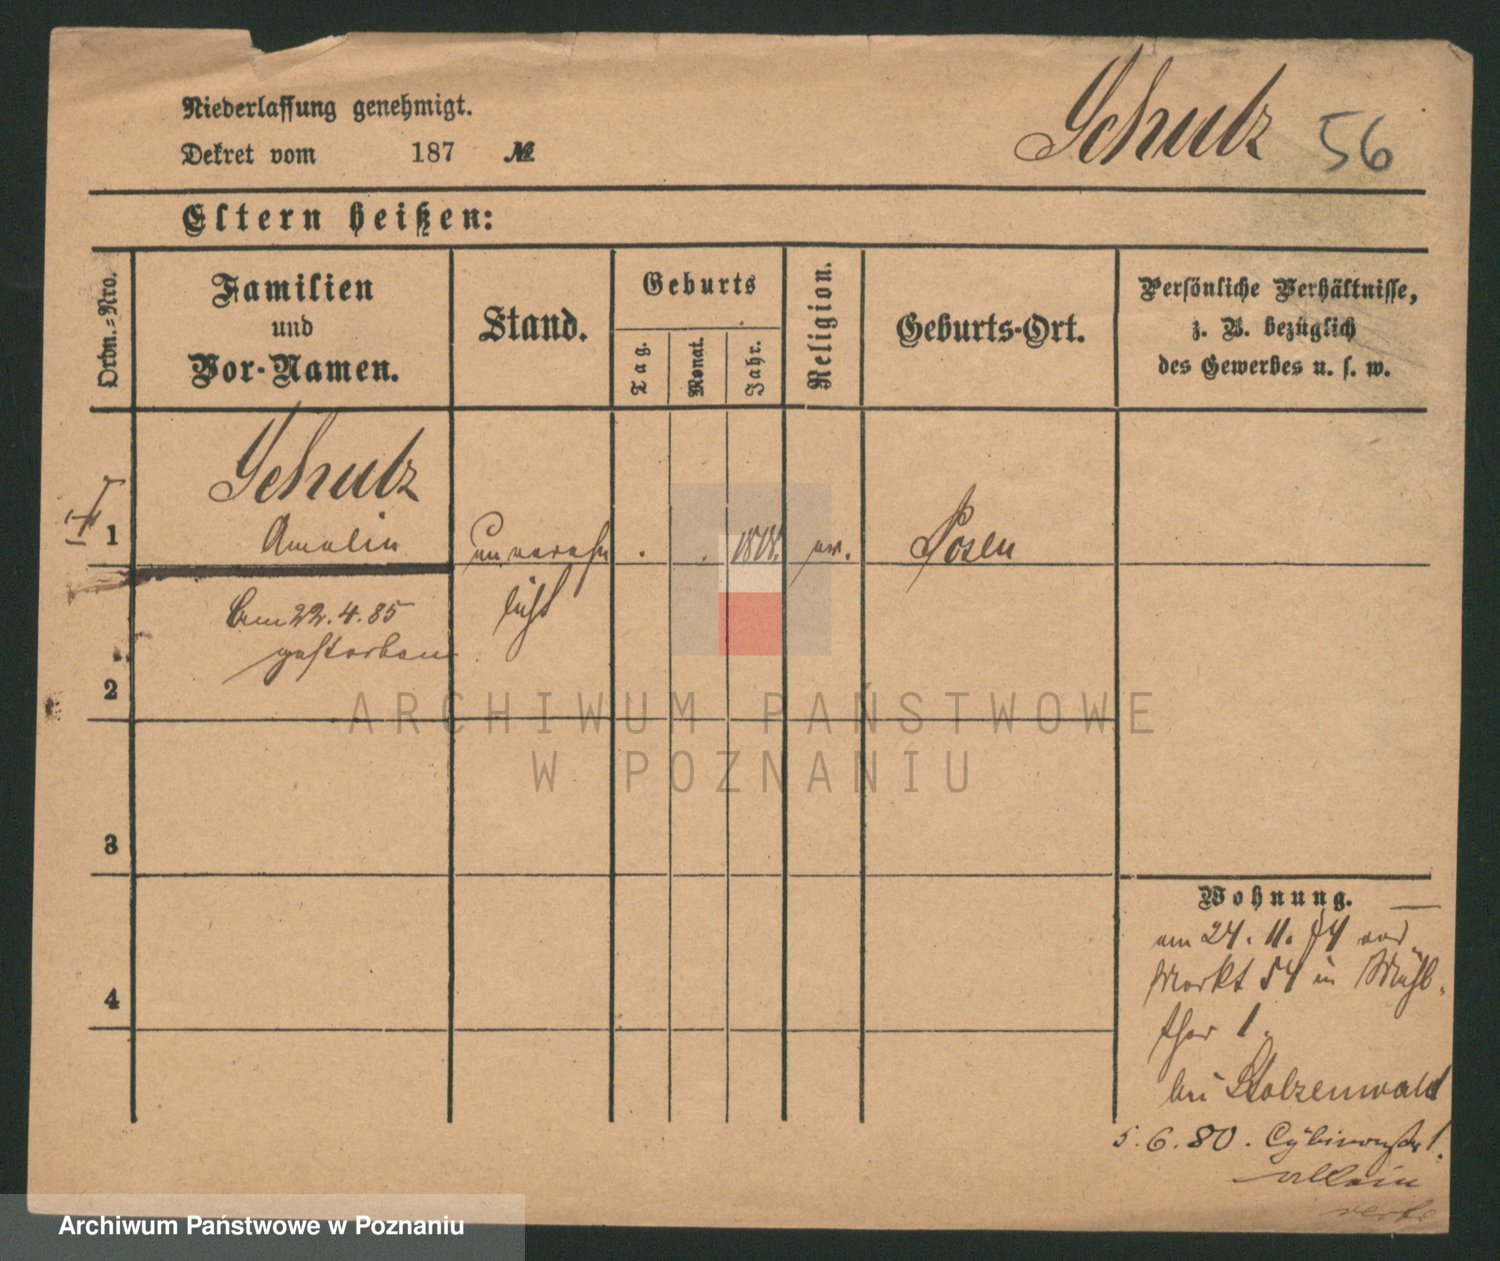 Niederlassung genehmigt.
Dekret vom 187 №
Schulz 56
Eltern heißen:
Ordn.-Nro.
Familien
und
Vor-Namen.
Stand.
Geburts
Tag.
Monat.
Jahr.
Religion.
Geburts-Ort.
Persönliche Verhältnisse,
z. B. bezüglich
des Gewerbes u. s. w.
Schulz
1 Amalie unvereh 1818. ev. Posen
licht
Am 22.4.85
gestorben
2
3
4
Wohnung.
am 24. 11. 74 von
Markt 54 in Mühl
thor 1.
bei Stolzenwald
5.6.80. 1.
allein
ARCHIWUM PAŃSTWOWE
W POZNANIU
Archiwum Państwowe w Poznaniu